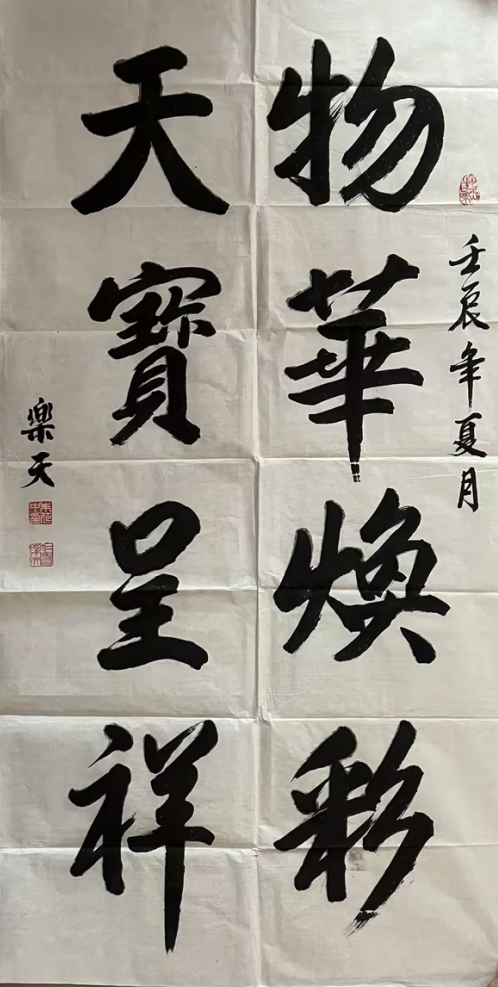 壬辰年夏月
物華煥彩
天寶呈祥
樂天